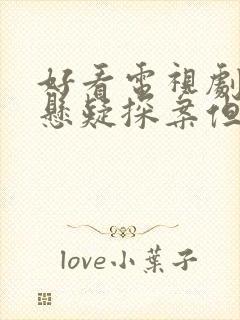 好看電視劇
懸疑探案但
love小葉子